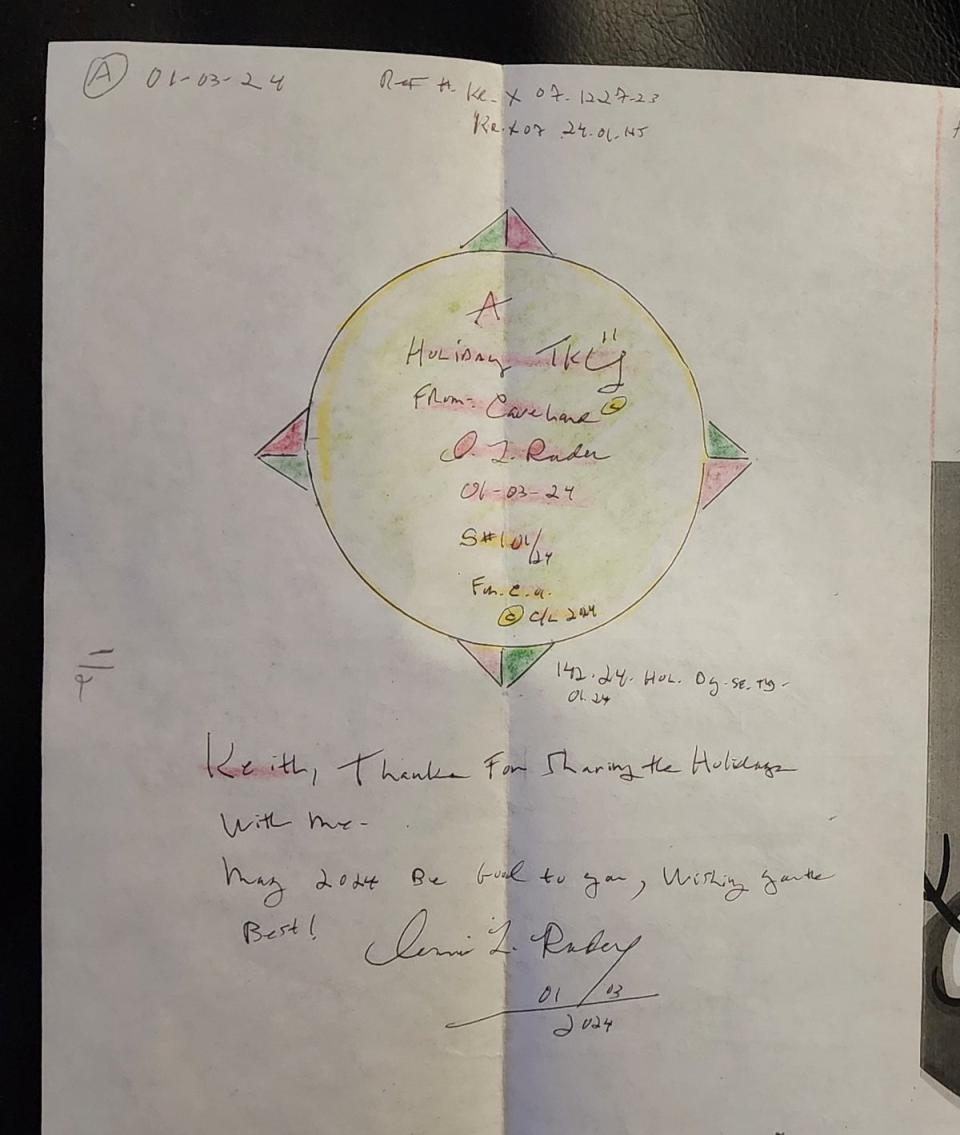 A 01-03-24
Ref #. Ke. X 07-1227-23
Ke. X 07 24.01.
A
Holiday
From:
D. L. Rader
01-03-24
S#101/24
© C/L 2024
142.24. Hol. Dg-se.
01.24
Keith, Thanks For Sharing the Holidays
With me-
May 2024 Be Good to you, Wishing you the
Best!
L. Rader
01/03
2024